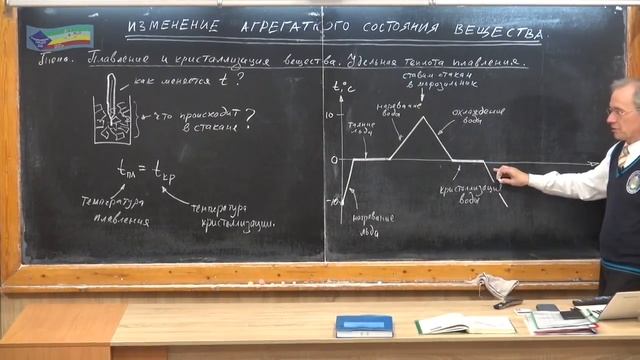 ИЗМЕНЕНИЕ АГРЕГАТНОГО СОСТОЯНИЯ ВЕЩЕСТВА.
Тема. Плавление и кристаллизация вещества. Удельная теплота плавления.
как меняется t?
что происходит
в стакане?
tпл = tкр
Температура
плавления
температура
кристаллизации.
ставим стакан
в морозильник
t,°C
10
0
-10
нагревание
воды
охлаждение
воды
таяние
льда
кристаллизация
воды
нагревание
льда